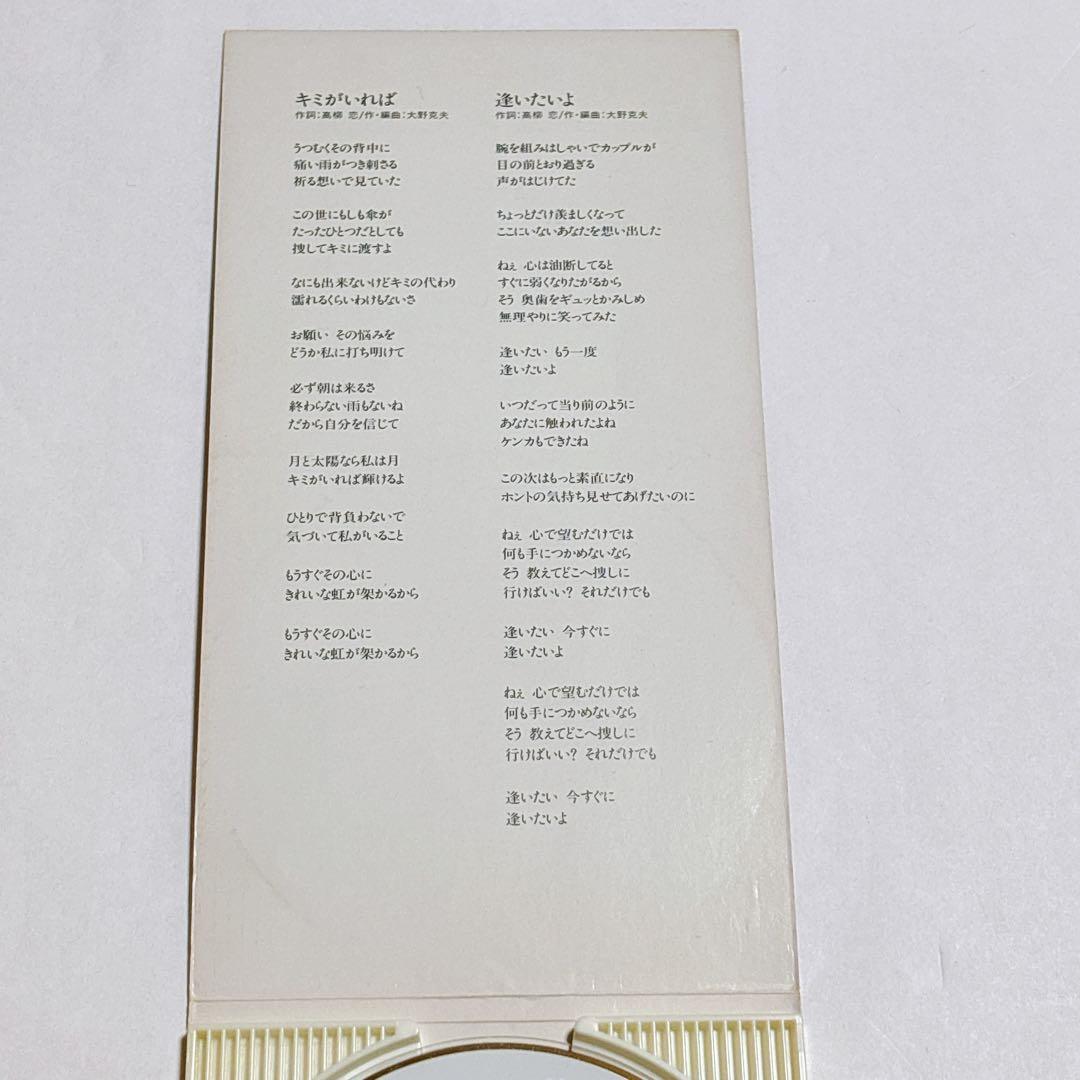 キミがいれば
作詞:高柳 恋/作・編曲:大野克夫
うつむくその背中に
痛い雨がつき刺さる
祈る想いで見ていた
この世にもしも傘が
たったひとつだとしても
捜してキミに渡すよ
なにも出来ないけどキミの代わり
濡れるくらいわけもないさ
お願い その悩みを
どうか私に打ち明けて
必ず朝は来るさ
終わらない雨もないね
だから自分を信じて
月と太陽なら私は月
キミがいれば輝けるよ
ひとりで背負わないで
気づいて私がいること
もうすぐその心に
きれいな虹が架かるから
もうすぐその心に
きれいな虹が架かるから
逢いたいよ
作詞:高柳 恋/作・編曲:大野克夫
腕を組みはしゃいでカップルが
目の前とおり過ぎる
声がはじけてた
ちょっとだけ羨ましくなって
ここにいないあなたを想い出した
ねぇ 心は油断してると
すぐに弱くなりたがるから
そう 奥歯をギュッとかみしめ
無理やりに笑ってみた
逢いたい もう一度
逢いたいよ
いつだって当り前のように
あなたに触われたよね
ケンカもできたね
この次はもっと素直になり
ホントの気持ち見せてあげたいのに
ねぇ 心で望むだけでは
何も手につかめないなら
そう 教えてどこへ捜しに
行けばいい? それだけでも
逢いたい 今すぐに
逢いたいよ
ねぇ 心で望むだけでは
何も手につかめないなら
そう 教えてどこへ捜しに
行けばいい? それだけでも
逢いたい 今すぐに
逢いたいよ